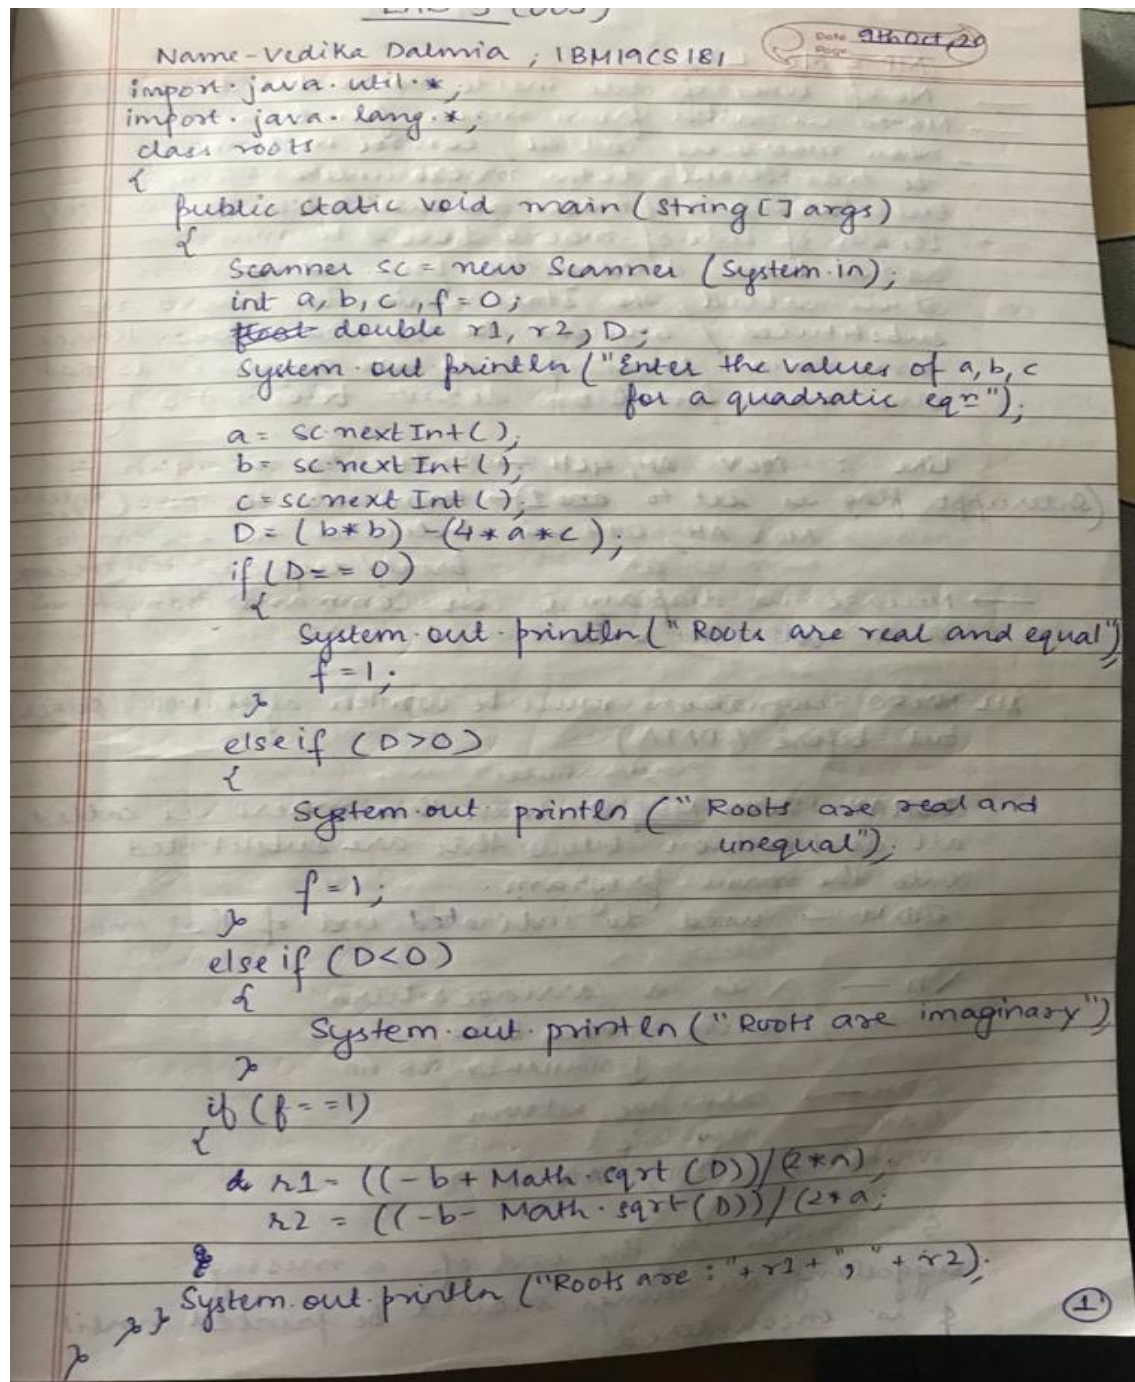 Name - Vedika Dalmia , 1BM19CS181
Date 9th Oct, 20
Page
import. java. util. *;
import. java. lang. *;
class roots
{
public static void main (string [] args)
{
Scanner sc = new Scanner (System.in);
int a, b, c , f = 0;
double r1, r2, D;
System.out println ("Enter the values of a, b, c
for a quadratic eqn");
a = sc.nextInt( );
b = sc.nextInt ( );
c = sc.next Int ( );
D = ( b*b) -(4*a*c);
if (D== 0)
{
System.out.println(" Roots are real and equal");
f = 1;
}
else if (D>0)
{
System.out println (" Roots are real and
unequal");
f = 1;
}
else if (D<0)
{
System.out.println ("Roots are imaginary")
}
if (f==1)
{
r1 = ((-b + Math.sqrt (D))/(2*a);
r2 = ((-b- Math.sqrt (D))/(2*a;
System.out.println ("Roots are : "+r1+", "+ r2);
} }
}
1